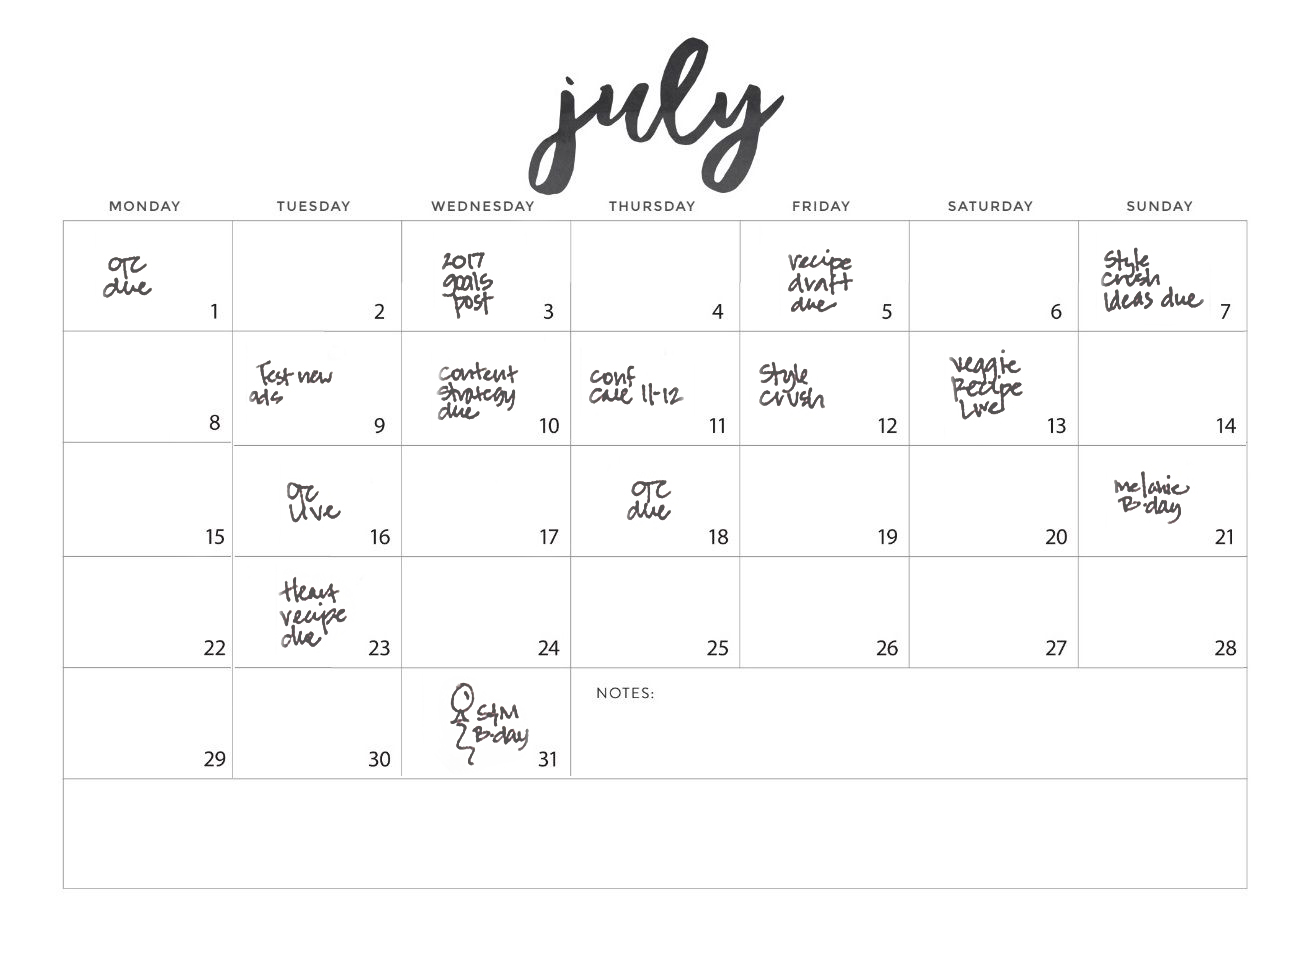 july
MONDAY TUESDAY WEDNESDAY THURSDAY FRIDAY SATURDAY SUNDAY
OTC
due
1
2
2017
goals
post
3
4
recipe
draft
due
5
6
Style
crush
Ideas due
7
8
Test new
ads
9
content
strategy
due
10
conf
call 11-12
11
Style
crush
12
veggie
Recipe
Live
13
14
15
OTC
Live
16
17
OTC
due
18
19
20
Melanie
B-day
21
22
Heart
recipe
due
23
24
25
26
27
28
29
30
S&M
B-day
31
NOTES: